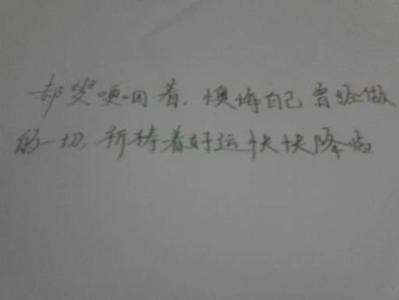 都哭哽咽着,懊悔自己曾经做
的一切,祈待着好运快快降临